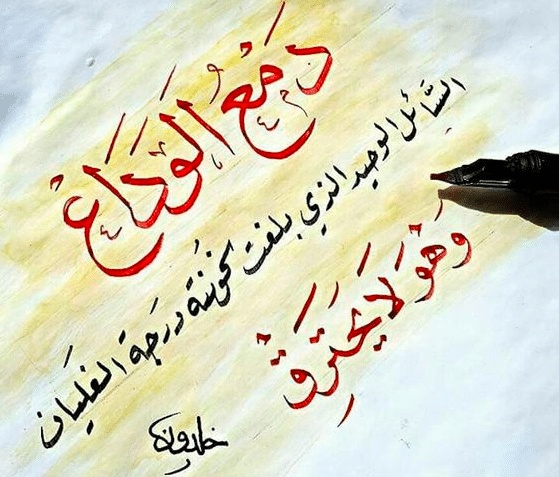 دَمْعُ الْوَدَاعْ
السَّائل الوحيد الذي بلغت سخونته درجة الغليان
وَهوَ لَا يَحْتَرِقْ
خلدون